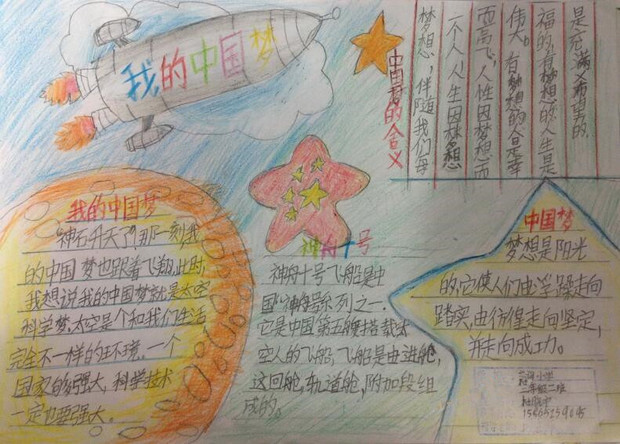 我的中国梦
中国梦的含义
梦想，伴随我们每
一个人，人生因梦想
而高飞，人性因梦想而
伟大。有梦想的人是幸
福的，有梦想的人生是
是充满希望的
我的中国梦
升天了，那一刻，我
的中国梦也跟着飞翔，此时，
我想说我的中国梦就是太空
科学梦，太空是个和我们生活
完全不一样的环境。一个
国家够强大，科学技术
一定也要强大。
神舟十号
神舟十号飞船是中
国“神舟”号系列之一.
它是中国第五艘搭载太
空人的飞船，飞船是由进舱，
这回舱，轨道舱，附加段组
成的。
中国梦
梦想是阳光
的，它使人们由浮躁走向
踏实，由彷徨走向坚定，
并走向成功。
小学
二年级二班